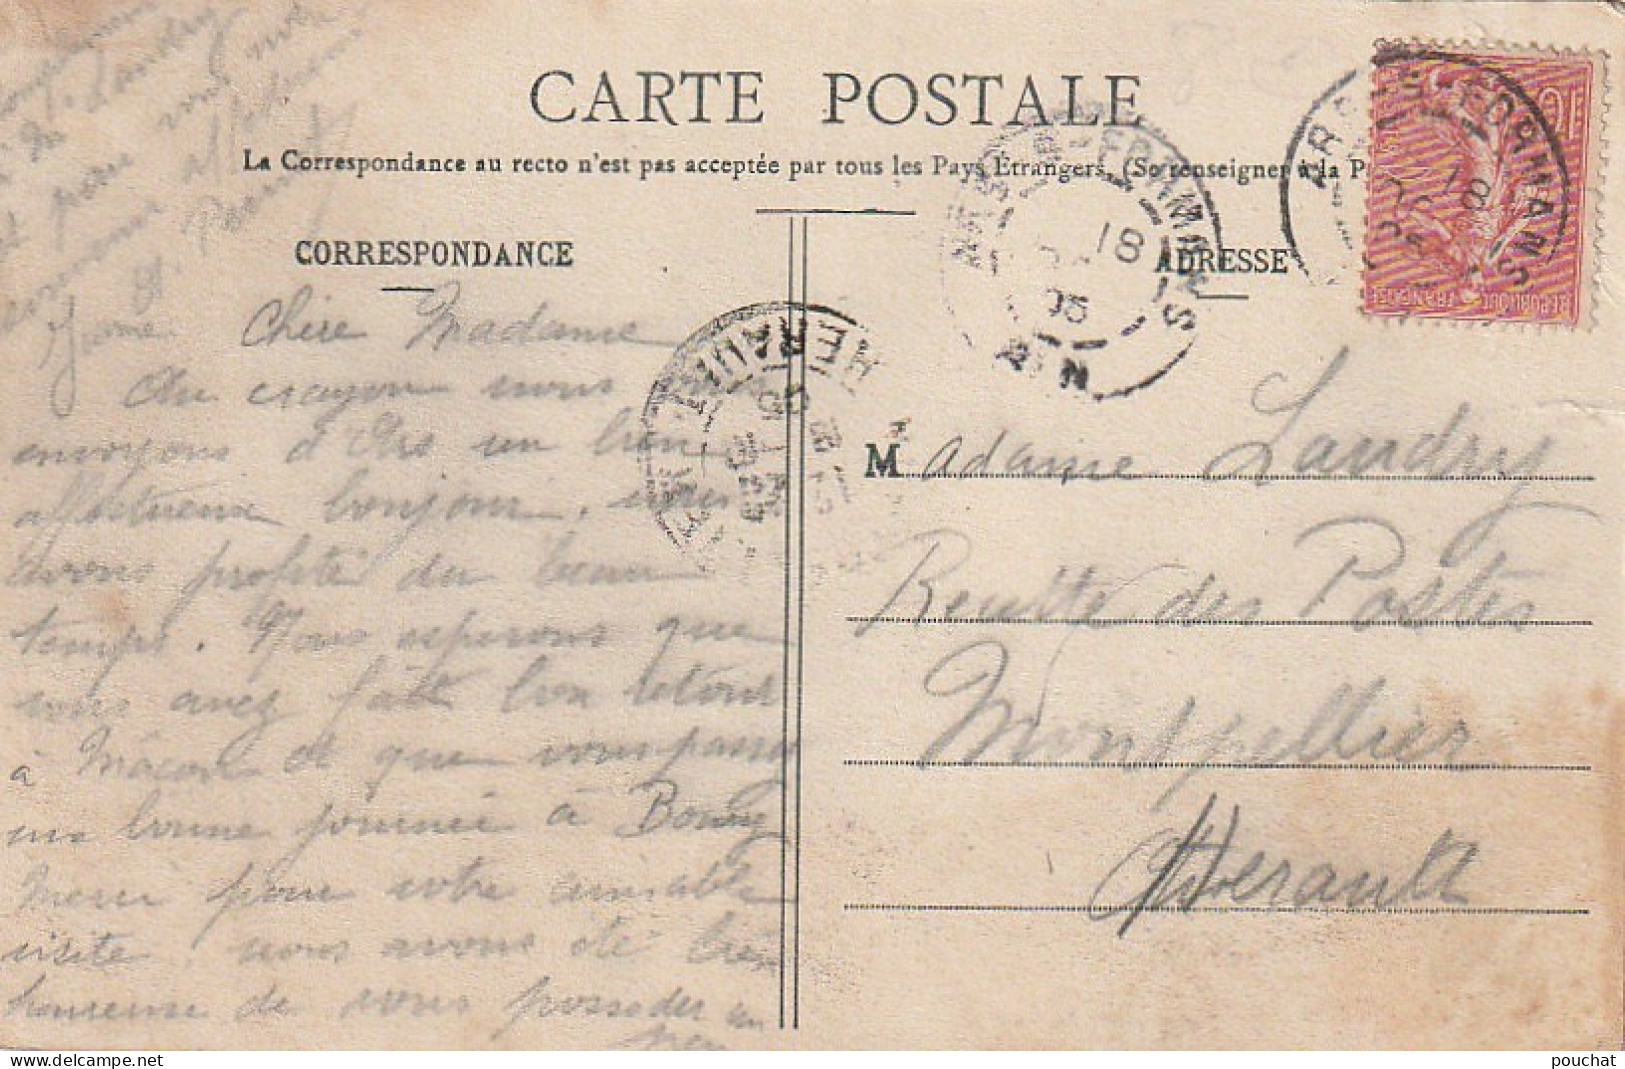 CARTE POSTALE
La Correspondance au recto n'est pas acceptée par tous les Pays Étrangers. (Se renseigner à la P
CORRESPONDANCE
ADRESSE
Chère Madame
Au crayon nous vous
envoyons d'Ars un bien
affectueux bonjour, nous
avons profité du beau
temps. Nous esperons que
vous avez fait bon retour
à Mâcon et que vous passez
une bonne journée à Bourg
Merci pour votre aimable
visite, nous avons été bien
heureuse de vous posseder un
peu
pour
M adame Landry
Recette des Postes
Montpellier
Herault
ARS-S-FORMANS
18
AIN
HERAULT
10
RÉPUBLIQUE FRANÇAISE
pouchat